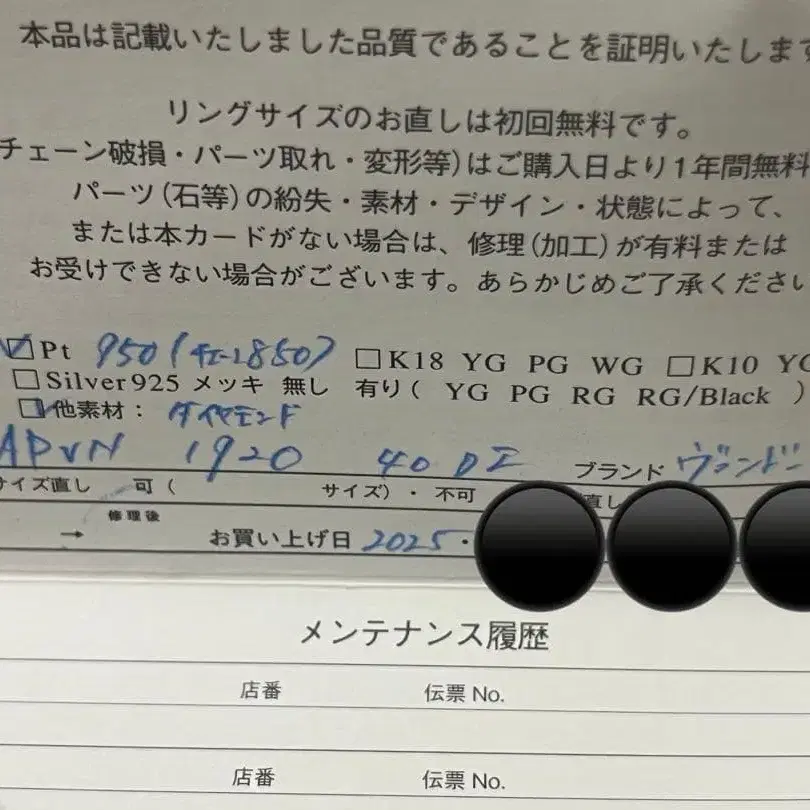 本品は記載いたしました品質であることを証明いたします
リングサイズのお直しは初回無料です。
チェーン破損・パーツ取れ・変形等)はご購入日より1年間無料
パーツ(石等)の紛失・素材・デザイン・状態によって、
または本カードがない場合は、修理(加工)が有料または
お受けできない場合がございます。あらかじめご了承ください
☑Pt 950(チェーン850) □K18 YG PG WG □K10 YG
□Silver925 メッキ 無し 有り( YG PG RG RG/Black )
☑他素材: ダイヤモンド
APVN 1920 40 DI ブランド ヴァンドー
サイズ直し 可( サイズ)・不可 直し
修理後
→ お買い上げ日 2025・
メンテナンス履歴
店番 伝票 No.
店番 伝票 No.